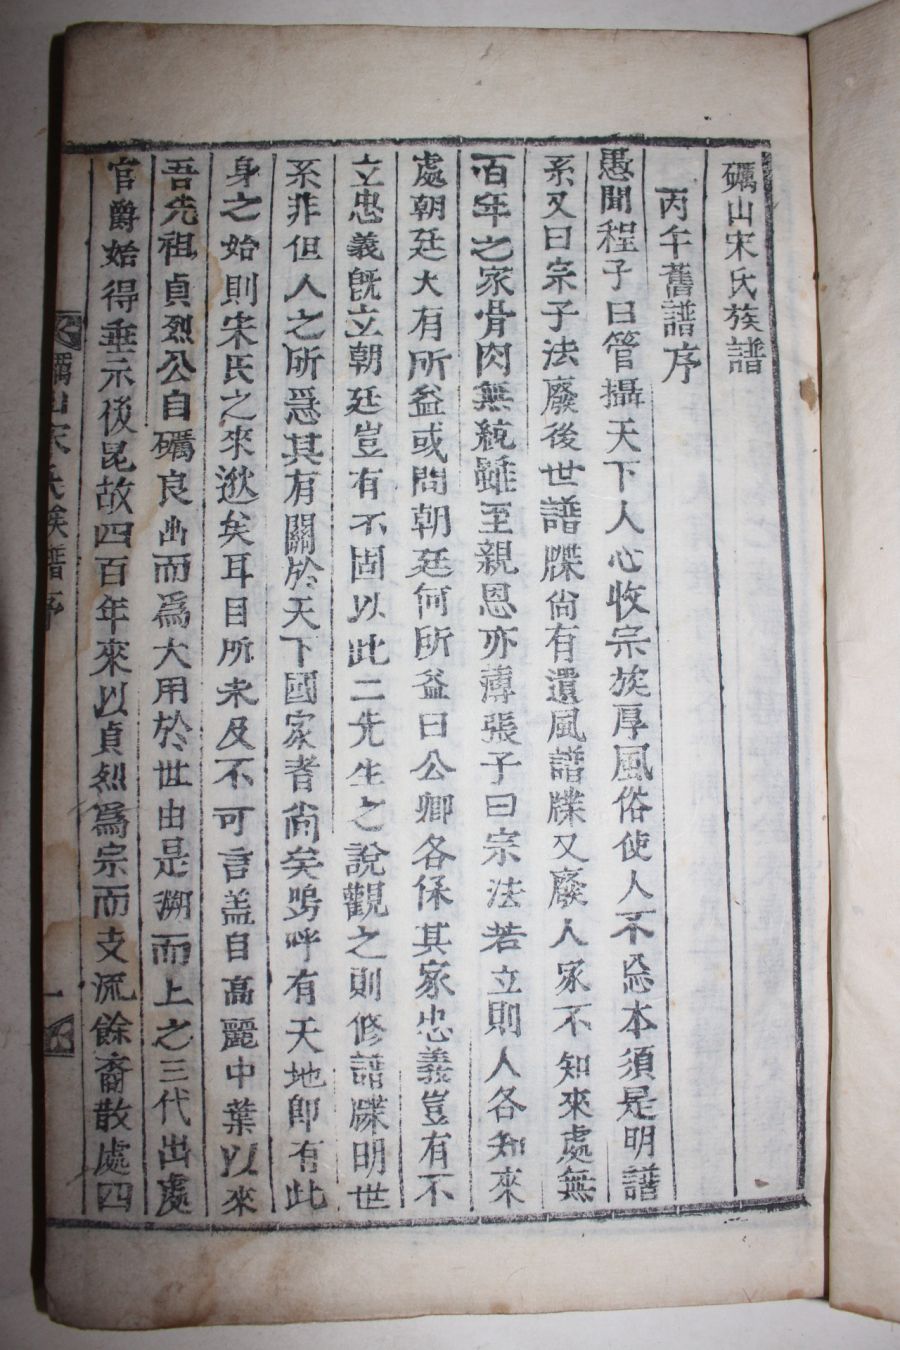 礪山宋氏族譜
丙午舊譜序
愚聞程子曰管攝天下人心收宗族厚風俗使人不忘本須是明譜
系又曰宗子法廢後世譜牒尙有遺風譜牒又廢人家不知來處無
百年之家骨肉無統雖至親恩亦薄張子曰宗法若立則人各知來
處朝廷大有所益或問朝廷何所益曰公卿各保其家忠義豈有不
立忠義旣立朝廷豈有不固以此二先生之說觀之則修譜牒明世
系非但人之所爲其有關於天下國家者尙矣嗚呼有天地卽有此
身之始則宋氏之來逖矣耳目所未及不可言盖自高麗中葉以來
吾先祖貞烈公自礪良出而爲大用於世由是溯而上之三代出處
官爵始得垂示後昆故四百年來以貞烈爲宗而支流餘裔散處四
礪山宋氏族譜序
一